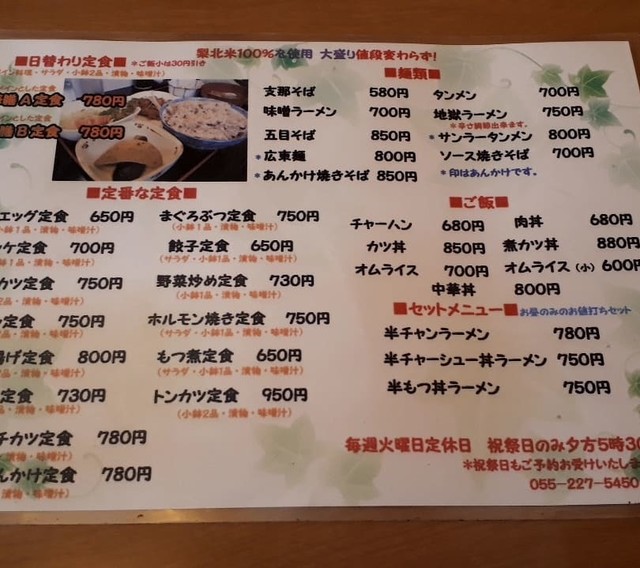 梨北米100%を使用 大盛り値段変わらず!
■日替わり定食■ *ご飯小は30円引き
イン料理・サラダ・小鉢2品・漬物・味噌汁)
インとした定食
A定食 780円
インとした定食
B定食 780円
■定番な定食■
エッグ定食 650円
小鉢1品・漬物・味噌汁)
ケ定食 700円
小鉢1品・漬物・味噌汁)
カツ定食 750円
・漬物・味噌汁)
定食 750円
・漬物・味噌汁)
揚げ定食 800円
・漬物・味噌汁)
定食 730円
・漬物・味噌汁)
チカツ定食 780円
漬物・味噌汁)
んかけ定食 780円
漬物・味噌汁)
まぐろぶつ定食 750円
(小鉢1品・漬物・味噌汁)
餃子定食 650円
(サラダ・小鉢1品・漬物・味噌汁)
野菜炒め定食 730円
(小鉢1品・漬物・味噌汁)
ホルモン焼き定食 750円
(サラダ・小鉢1品・漬物・味噌汁)
もつ煮定食 650円
(サラダ・小鉢1品・漬物・味噌汁)
トンカツ定食 950円
(小鉢2品・漬物・味噌汁)
■麺類■
支那そば 580円
味噌ラーメン 700円
五目そば 850円
*広東麺 800円
*あんかけ焼きそば 850円
タンメン 700円
地獄ラーメン 750円
*辛さ調節出来ます。
*サンラータンメン 800円
ソース焼きそば 700円
*印はあんかけです。
■ご飯■
チャーハン 680円 肉丼 680円
カツ丼 850円 煮カツ丼 880円
オムライス 700円 オムライス(小) 600円
中華丼 800円
■セットメニュー■お昼のみのお値打ちセット
半チャンラーメン 780円
半チャーシュー丼ラーメン 750円
半もつ丼ラーメン 750円
毎週火曜日定休日 祝祭日のみ夕方5時30
*祝祭日もご予約お受けいたしま
055-227-5450